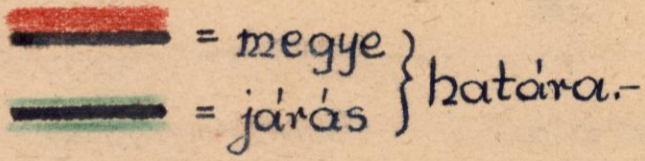 = megye
= járás } határa.-